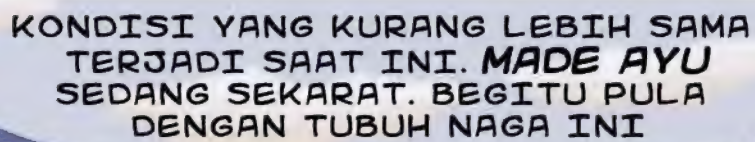 KONDISI YANG KURANG LEBIH SAMA
TERJADI SAAT INI. MADE AYU
SEDANG SEKARAT. BEGITU PULA
DENGAN TUBUH NAGA INI